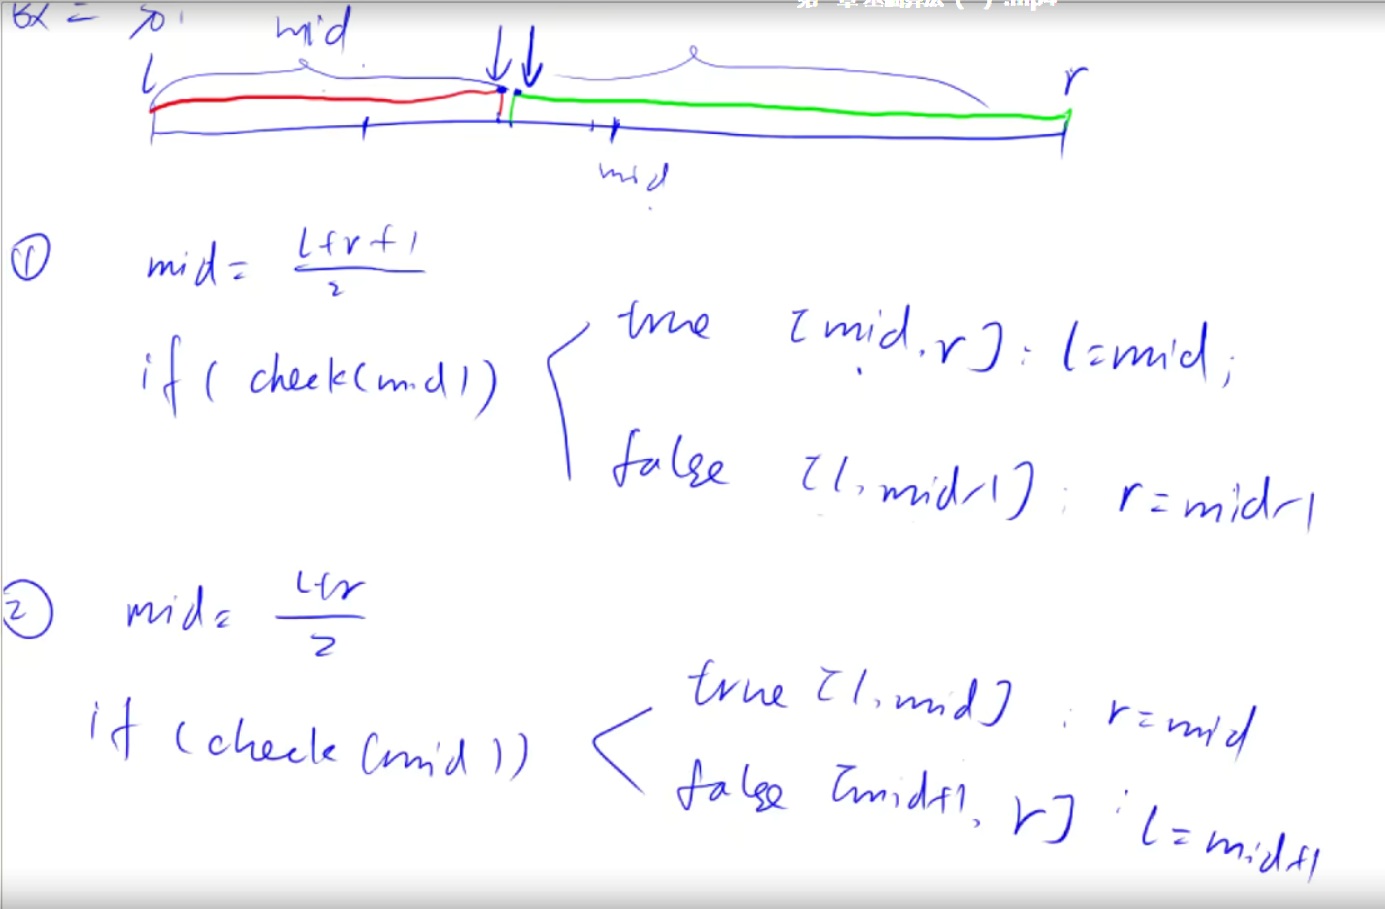 mid
l
r
mid
① mid = (l+r+1)/2
if (check(mid))
true [mid, r] : l=mid;
false [l, mid-1] : r=mid-1
② mid = (l+r)/2
if (check(mid))
true [l, mid] : r=mid
false [mid+1, r] : l=mid+1